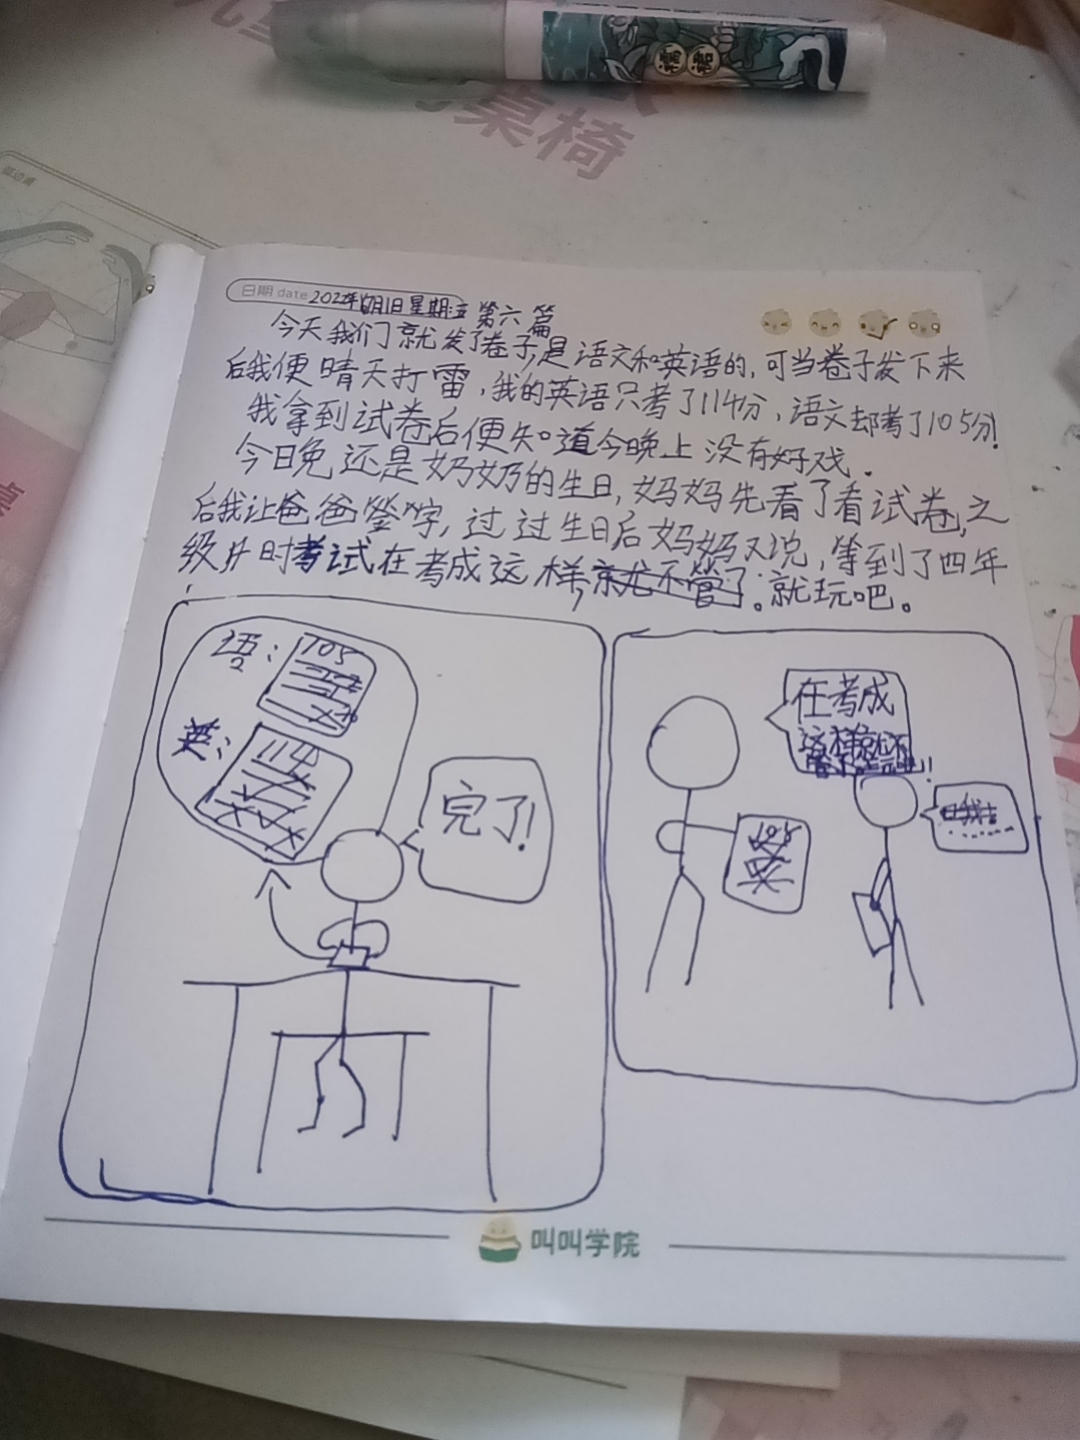 福 諾
桌椅
日期 date 星期五 第六篇
今天我们就发了卷子,是语文和英语的,可当卷子发下来
后我便晴天打雷,我的英语只考了114分,语文却考了105分!
我拿到试卷后便知道今晚上没有好戏.
今日晚还是奶奶的生日,妈妈先看了看试卷,之
后我让爸爸签字,过过生日后妈妈又说,等到了四年
级片时考试在考成这样,就不管了。就玩吧。
语:105
英:114
完了!
在考成
这样就不
管了
105
叫叫学院